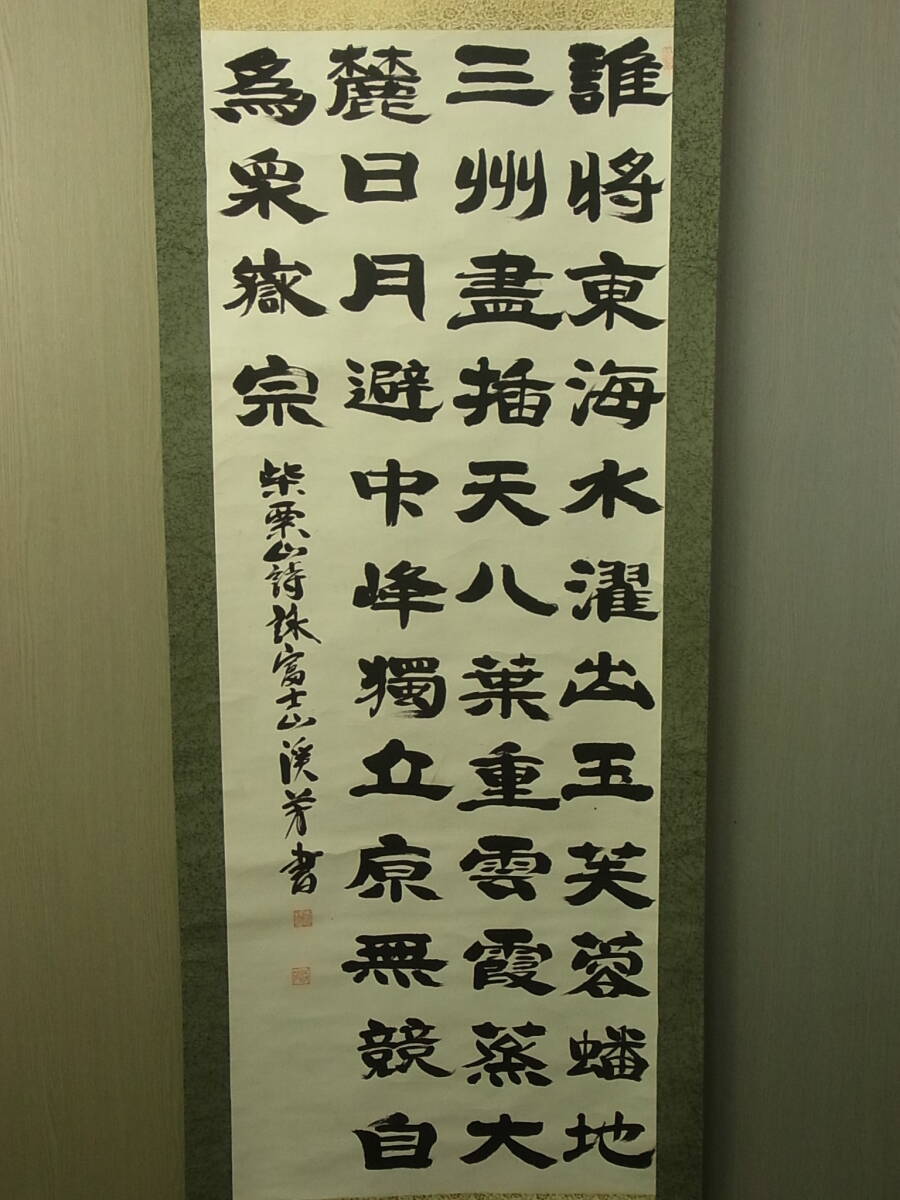 誰將東海水濯出玉芙蓉蟠地
三州盡插天八葉重雲霞蒸大
麓日月避中峰獨立原無競自
為衆嶽宗
柴栗山詩詠富士山 溪芳書